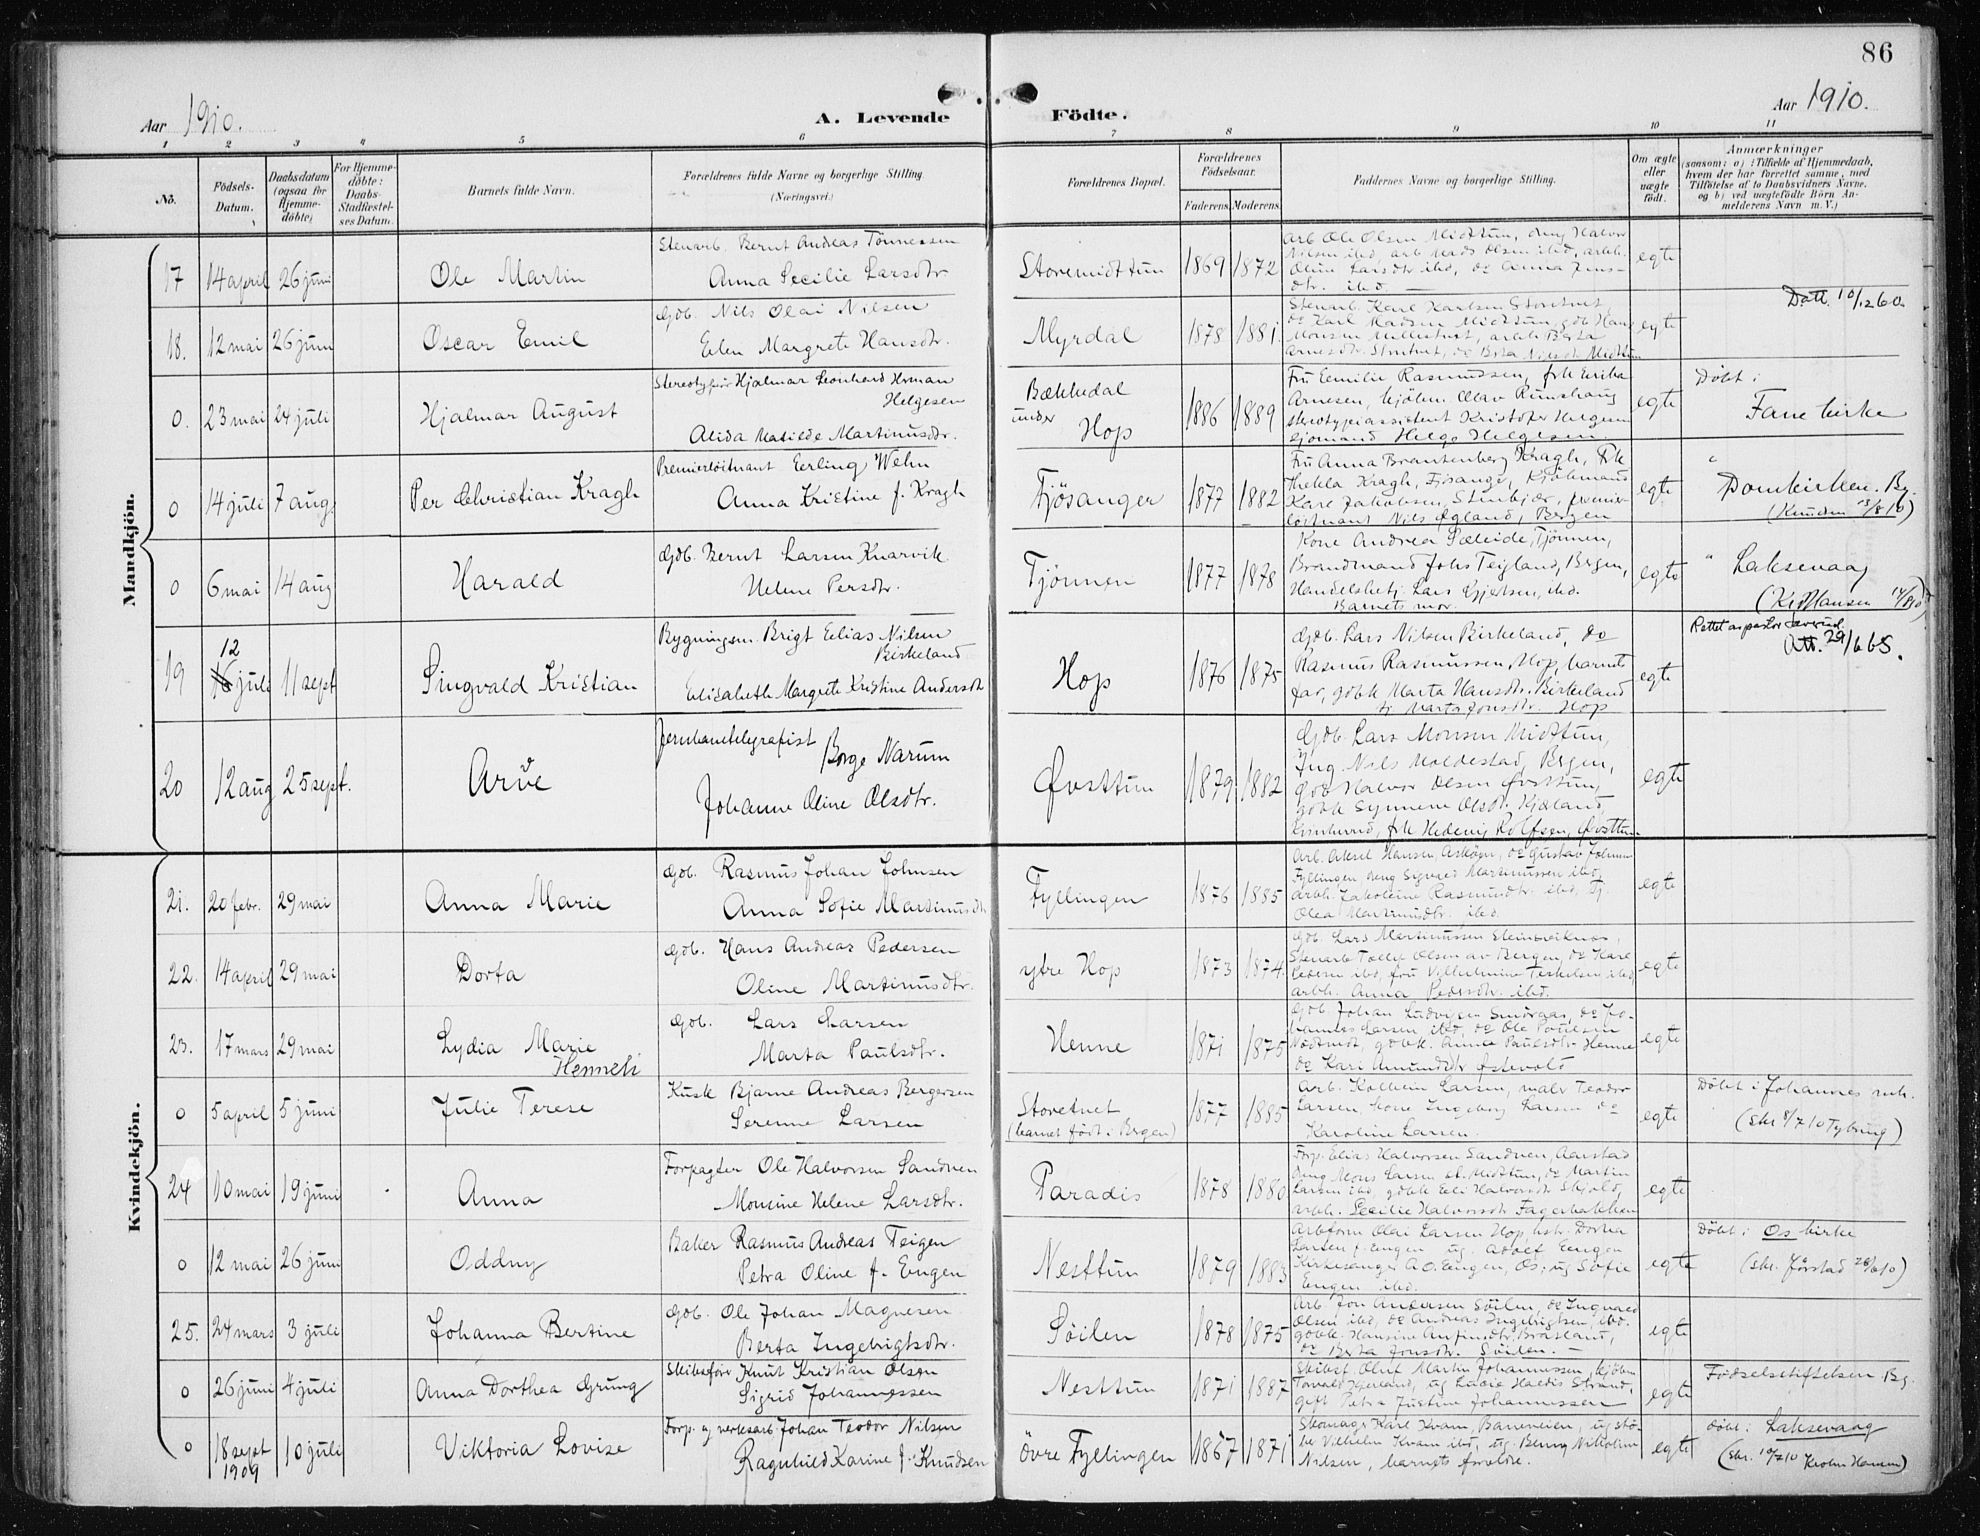 86
Aar 1910.
A. Levende Födte.
Aar 1910.
1 2 3 4 5 6 7 8 9 10 11
No.
Födsels-Datum.
Daabsdatum (ogsaa for Hjemme-döbte)
For Hjemme-döbte: Daabs-Stadfæstel-ses Datum.
Barnets fulde Navn.
Forældrenes fulde Navne og borgerlige Stilling
(Næringsvei.)
Forældrenes Bopæl.
Forældrenes Födselsaar.
Faderens Moderens
Faddernes Navne og borgerlige Stilling.
Om ægte eller uægte födt.
Anmærkninger
(saasom: a) i Tilfælde af Hjemmedaab, hvem der har forrettet samme, med Tilföielse af to Daabsvidners Navne, og b) ved uægtefödte Börn An-melderens Navn m. V.)
Mandkjön.
17 14 april 26 juni Ole Martin
Stenarb. Bernt Andreas Tönnessen
Anna Secilie Larsdtr
Storemidttun 1869 1872
Arb Ole Olsen Midttun, Halvor
Nilsen ibid, arb Mads Olsen ibid, arbk.
Olina Larsdtr ibid, do Anna
dtr. ibid. —
egte
18. 12 mai 26 juni Oscar Emil
Gdb. Nils Olai Nilsen
Elen Margrete Hansdtr.
Myrdal 1878 1881.
Stenarb. Karl Karlsen Storetvet
do Karl Madsen Midttun, gdb Hans
Monsen
egte
Datt. 10/12 60.
0. 23 mai 24 juli Hjalmar August
Stereotypör Hjalmar Leonhard Herman
Helgesen
Alida Matilde Martinusdtr.
Bækkedal
under Hop
1886 1889
Fru Emilie Rasmussen, frk Erika
Arnesen, kjöbm. Olav Rimshaug
stereotypiassistent Kristofer Helgesen
sjömand Helge Helgesen.
egte
Döbt i
Fane kirke
0 14 juli 7 aug. Per Christian Kragh
Premierlöitnant Eerling Wehn
Anna Kristine f. Kragh
Fjösanger 1877 1882
Fru Anna Brantenberg Kragh, Frk
Thekla Kragh, Fjösanger, Kjöbmand
Karl Jakobsen, Stenkjær, premier-
löitnant Nils Ögland, Bergen
egte
" Domkirken. Bg.
(Knudsen 13/8 16)
0 6 mai 14 aug Harald
Gdb. Bernt Larsen Knarvik.
Helene Persdtr.
Tjönnen 1877 1878
Kone Andrea Sæleide, Tjönnen,
Brandmand Johs Teigland, Bergen,
Handelsbetj. Lars Gjertsen, ibid.
Barnets mor.
egte
" Laksevaag
(Kr Hansen 14/8 10)
19 12 16 juli 11 sept Singvald Kristian
Bygningsm. Brigt Elias Nilsen
Birkeland
Elisabeth Margrete Kristine Andersdtr
Hop 1876 1875
Gdb. Lars Nilsen Birkeland, do
Rasmus Rasmussen, Hop, barnets
far, gdbk Marta Hansdtr. Birkeland
Marta Jonsdtr. Hop
egte
Rettet av pastor
Att. 29/6 65.
20 12 aug 25 sept. Arve
Jernbanetelegrafist Borge Narum
Johanne Oline Olsdtr.
Øvsttun 1879 1882
Gdb. Lars Monsen Midttun,
Ing. Nils Moldestad, Bergen,
gdb Halvor Olsen Øvsttun,
gdbk Synneve Olsdtr. Kjæland
frk Hedevig Rolfsen, Øvsttun
egte
Kvindekjön.
21. 20 febr. 29 mai Anna Marie
Gdb. Rasmus Johan Johnsen
Anna Sofie Martinusdtr
Fyllingen 1876 1885
Arb. Aksel Hansen Asköen, do Gustav Johnsen
Fyllingen, Sigvard Martinussen ibid,
arbk. Jakobine Rasmusdtr. ibid, Tj.
Olea Martinusdtr. ibid.
egte
22. 14 april 29 mai Dorta
Gdb. Hans Andreas Pedersen
Oline Martinusdtr.
ytre Hop 1873 1874.
Gdb. Lars Martinussen Steinsviknes,
Stenarb Tollef Olsen av Bergen, do Karl
Pedersen ibid, fru Vilhelmine Terkelsen ibid,
arbk. Anna Pedersdtr. ibid.
egte
23. 17 mars 29 mai Lydia Marie
Henneli
Gdb. Lars Larsen
Marta Paulsdtr.
Henne 1871 1875
Gdb. Johan Ludvigsen Smöraas, do Jo-
hannes Larsen, ibid, do Ole Poulsen
Nordtvedt, gdbk. Anna Paulsdtr Henne
do Kari Amundsdtr Östevold
egte
0 5 april 5 juni Julie Terese
Kusk Bjarne Andreas Bergersen
Serenne Larsen
Storetvet
(barnet födt i Bergen)
1877 1885
Arb. Kolbein Larsen, maler Teodor
Larsen, kone Ingeborg Larsen do
Karoline Larsen.
egte
Döbt i Johannes mk.
(skr 8/7 10 Tybring)
24 10 mai 19 juni Anna
Forpagter Ole Halvorsen Sandven
Monsine Helene Larsdtr.
Paradis 1878 1880
Forp. Elias Halvorsen Sandven, Aarstad
Ung Mons Larsen st. Midttun, do Martin
Larsen ibid, gdbk Eli Halvorsdtr Skjold,
arbk. Cecilie Halvorsdtr Fagerbakken
egte
0 12 mai 26 juni Oddny
Baker Rasmus Andreas Teigen
Petra Oline f. Eugen
Nesttun 1879 1883
Arbform Olai Larsen Hop, hstr. Dortea
Larsen f. Engen ug. Adolf Engen
Kirkesanger A. O. Engen, Os; ug Sofie
Engen ibid.
egte
Döbt i Os kirke
(skr. Förstad 28/6 10)
25. 24 mars 3 juli Johanna Bertine
Gdb. Ole Johan Magnesen
Berta Ingebrigtsdtr.
Söilen 1878 1875
Arb Jon Andersen Söilen, do Ingvald
Olsen ibid, do Andreas Ingebrigtsen, ibid.
gdbk. Hansine Anfinsdtr. Braaland,
do Berta Jonsdtr. Söilen. —
egte
0 26 juni 4 juli Anna Dorthea Grung
Skibsförer Knut Kristian Olsen
Sigrid Johannessen
Nesttun 1871 1887
Skibst. Oluf Martin Johannessen, kjöbm
Torvald Hjerland, ug Lucie Haldis Strand,
gift Petra Justine Johannessen
egte
Födselsstiftelsen Bg.
0 18 sept 1909 10 juli Viktoria Lovise
Forp. og verksarb Johan Teodor Nilsen
Ragnhild Karine f. Knudsen
övre Fyllingen 1867 1871
Skomager Karl Kvam, Baneveien, ug stö-
ber Vilhelm Kvam ibid, ug. Benny Nikoline
Nilsen, barnets forældre.
egte
döbt i Laksevaag
(skr. 10/7 10 Krohn Hansen)